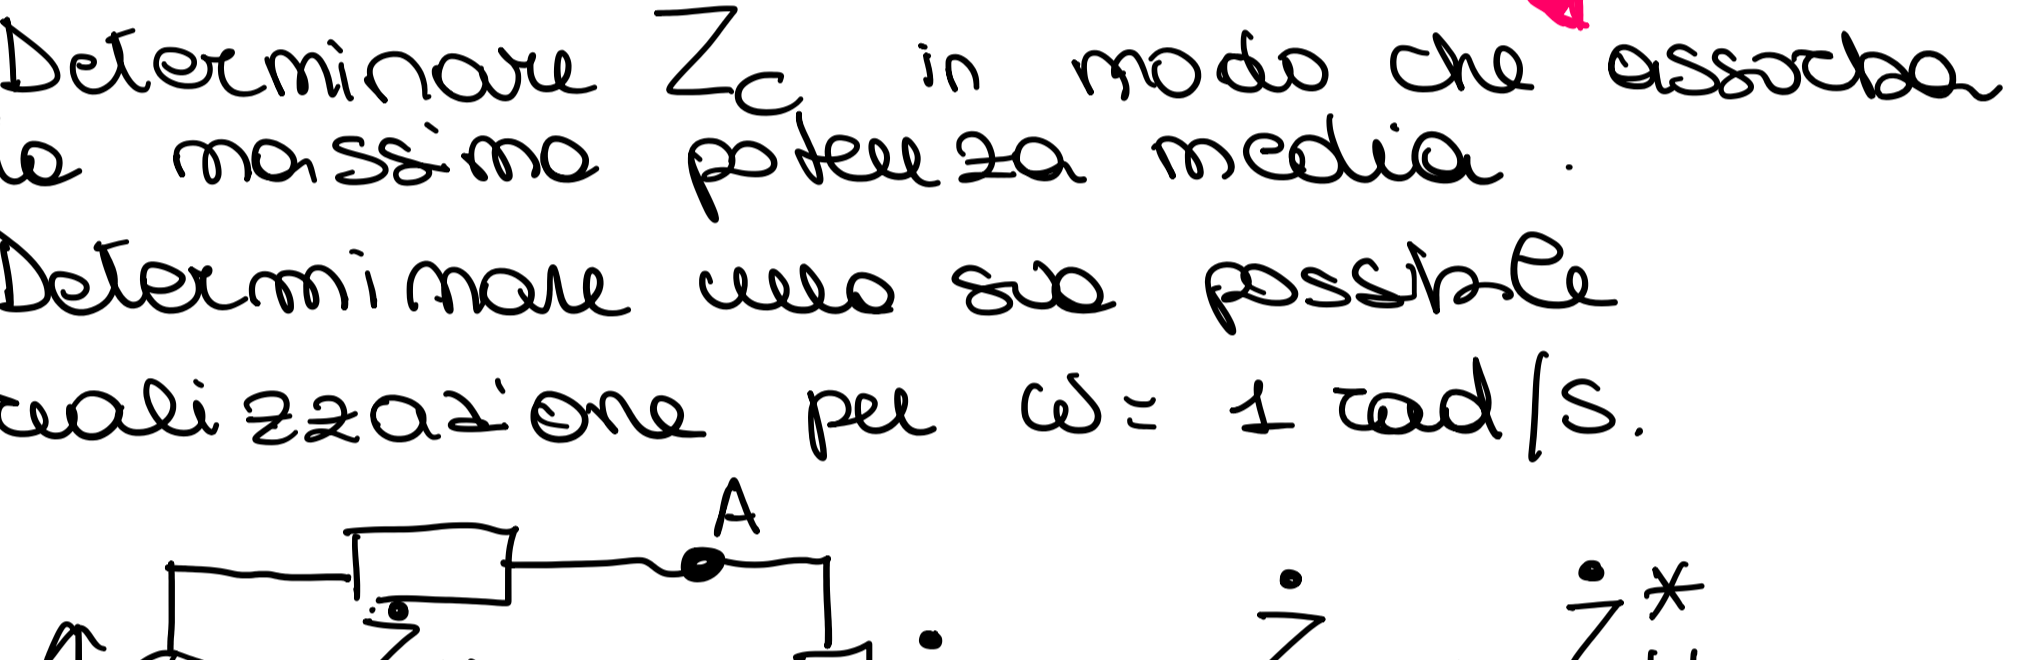 Determinare Zc in modo che assorba
la massima potenza media.
Determinare una sua possibile
realizzazione per ω = 1 rad/s.
A
Ż Ż Ż*